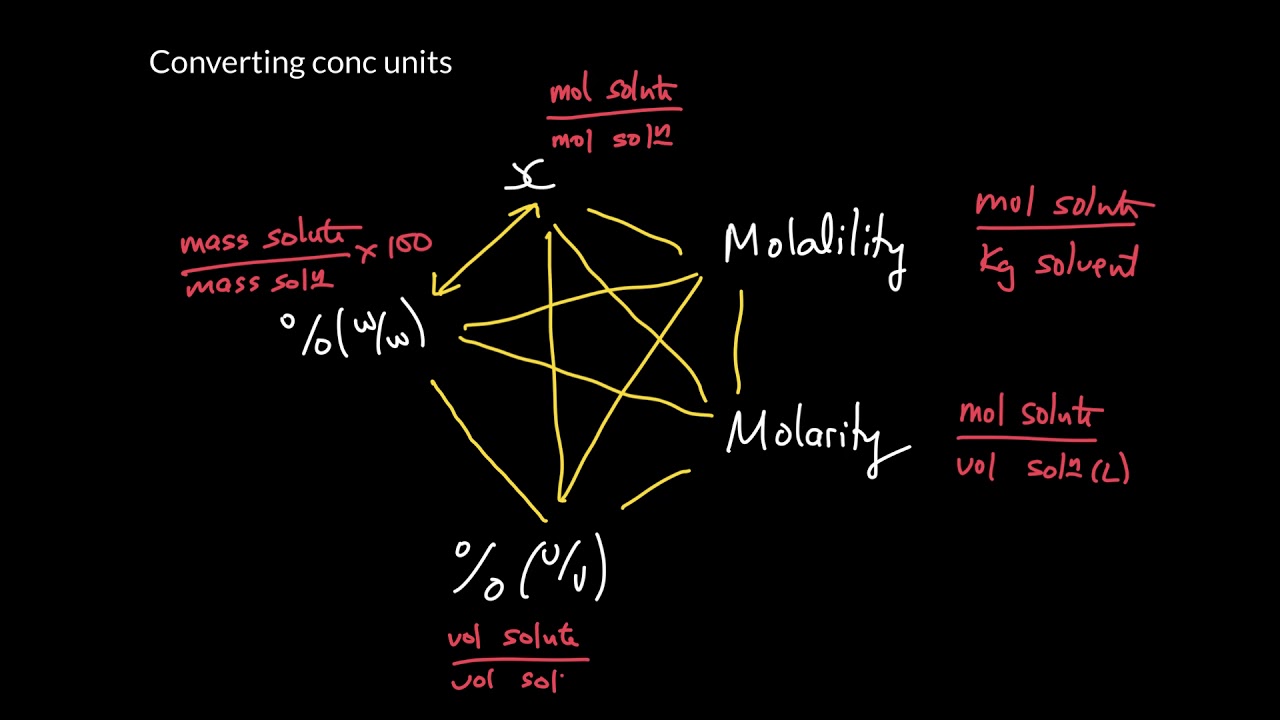 Converting conc units
mol solute
mol solⁿ
x
mass solute × 100
mass solⁿ
% (w/w)
Molalility
mol solute
Kg solvent
Molarity
mol solute
vol solⁿ (L)
% (v/v)
vol solute
vol sol